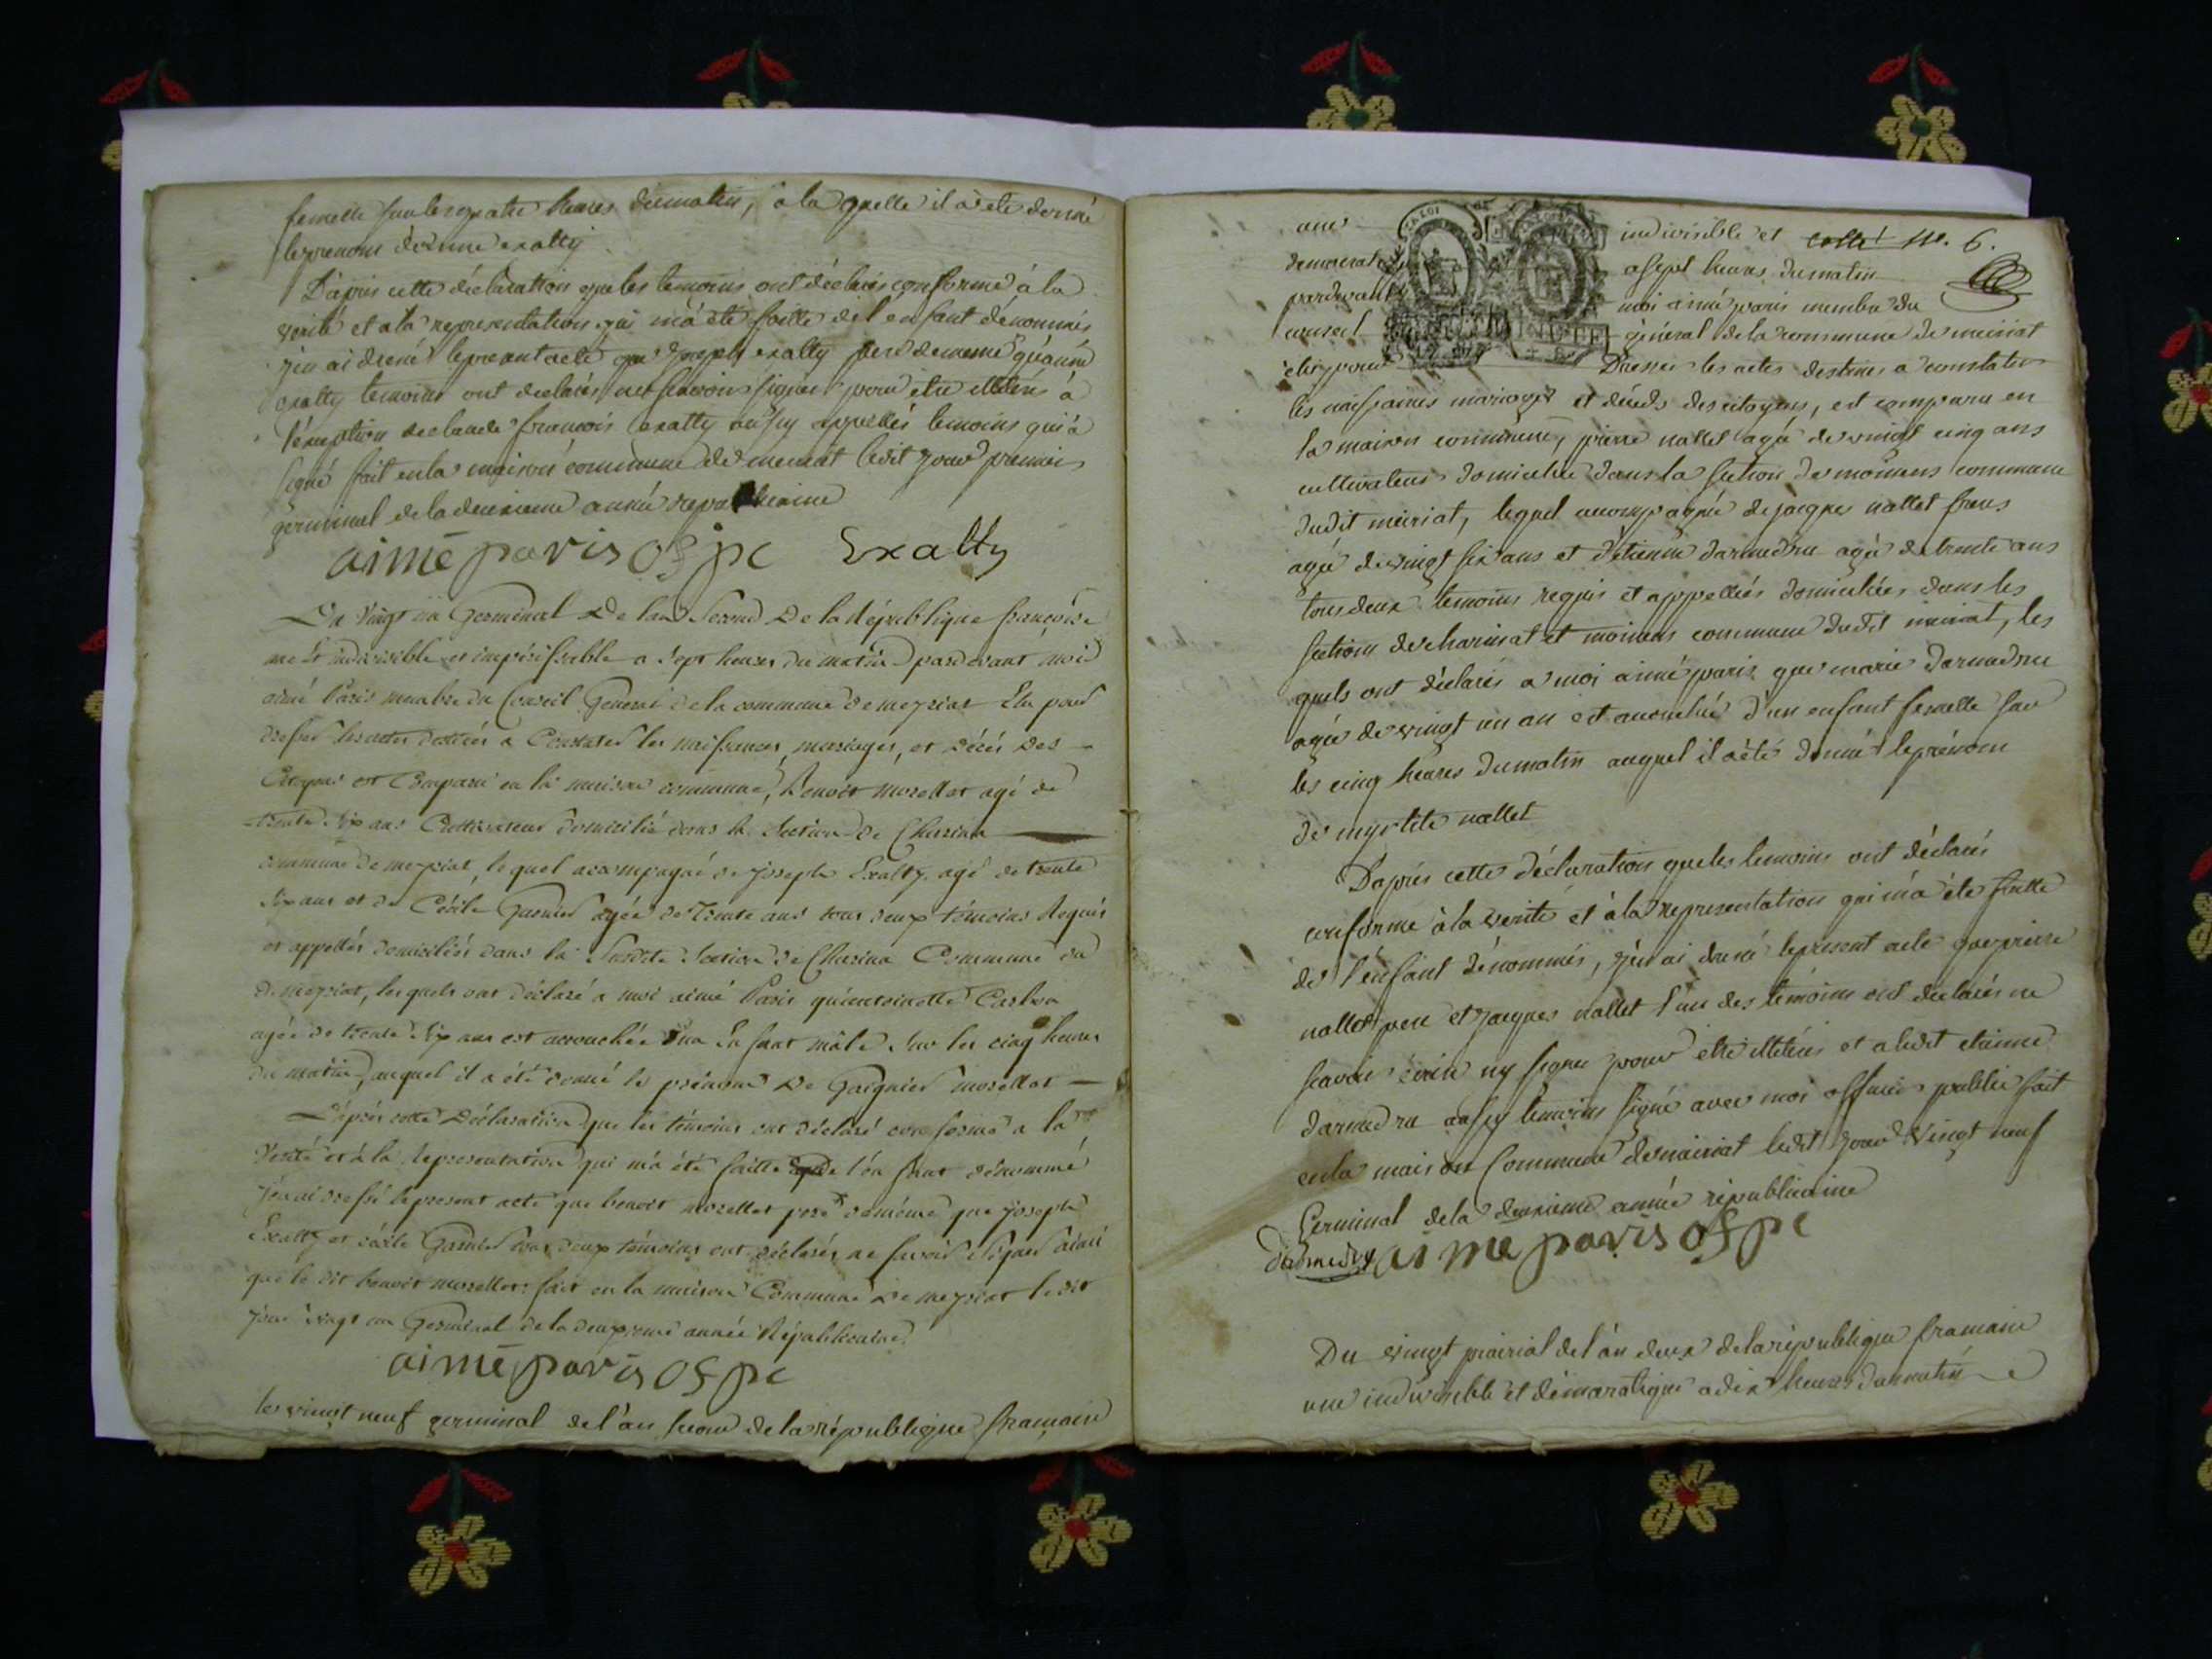 femelle sur les quatre heures du matin, à la quelle il a été donné
le prenom de exalty
D'après cette déclaration que les temoins ont déclaré conforme à la
verité et a la representation qui m'a été faitte de l'enfant dénommés
j'en ai dressé le present acte que joseph exalty pere de meme qu'anne
exalty temoins ont declarés ne scavoir signer pour être illiterés à
l'exception de claude francois exalty aussy appellés temoins qui à
signé fait en la maison commune de meiriat ledit jour premier
germinal de la deuxieme année republicaine
aimé paris of pc Exalty
Du Vingt un Germinal De lan Second De la République françoise
une et indivisible et impérissable a Sept heures du matin pardevant moi
aimé Paris membre du Conseil General de la commune de meyriat Elu pour
dresser les actes destinés a Constater les naissances, mariages, et décés des
Citoyens est Comparu en la maison commune, Benoit morellet agé de
trente Six ans Cultivateur domicilié dans la Section de Charina
commune de meyriat, lequel acompagné de joseph Exalty agé de trente
Six ans et de Cécile Garnier agée de Trente ans tous deux témoins Requis
et appellés domiciliés dans la Susdite Section de Charina Commune du
de meyriat, lesquels ont déclaré a moi aimé Paris qu'entoinette
agée de trente Six ans est accouchée d'un Enfant mâle Sur les cinq heures
du matin, auquel il a été donné le prénom de morellet
D'après cette Déclaration que les témoins ont déclaré conforme a la
Verité et à la Representation qui m'a été faitte de l'enfant dénommé
j'en ai dressé le present acte que benoit morellet pere de même que joseph
Exalty et cécile Garnier tous deux témoins ont déclarés ne savoir Signer ainsi
que le dit benoit morellet fait en la maison Commune de meyriat le dit
jour Vingt un Germinal de la deuxieme année Républicaine
aimé paris of pc
les vingt neuf germinal de l'an second de la république francaise
une indivisible et cotté No. 6.
democratique a sept heures du matin
pardevant moi aimé paris membre du
conseil général de la commune de meiriat
elu pour Dresser les actes destinés a constater
les naissances mariages et décéds des citoyens, est comparu en
la maison commune, pierre nallet agé de vingt cinq ans
cultivateur domicilié dans la section de moinens commune
dudit meiriat, lequel acompagné de jacques nallet frere
agé de vingt six ans et d'etienne darmedru agé de trente ans
tous deux temoins requis et appellés domiciliés dans les
sections de charinat et moinens commune dudit meiriat, les
quels ont déclarés a moi aimé paris que marie darmedru
agée de vingt un an est accouchée d'un enfant femelle sur
les cinq heures du matin auquel il a été donné le prénom
de myrtile nallet
D'après cette déclaration que les temoins ont déclarés
conforme à la verité et à la representation qui m'a été faitte
de l'enfant dénommés, j'en ai dressé le present acte que pierre
nallet pere et jacques nallet l'un des temoins ont declarés ne
scavoir écrire ny signer pour etre illiterés et a ledit etienne
darmedru aussy temoins signé avec moi officier public fait
en la maison Commune de meiriat ledit jour Vingt neuf
Germinal de la deuxieme année républicaine
darmedru aime paris of pc
Du vingt prairial de l'an deux de la république francaise
une indivisible et démocratique a dix heures du matin